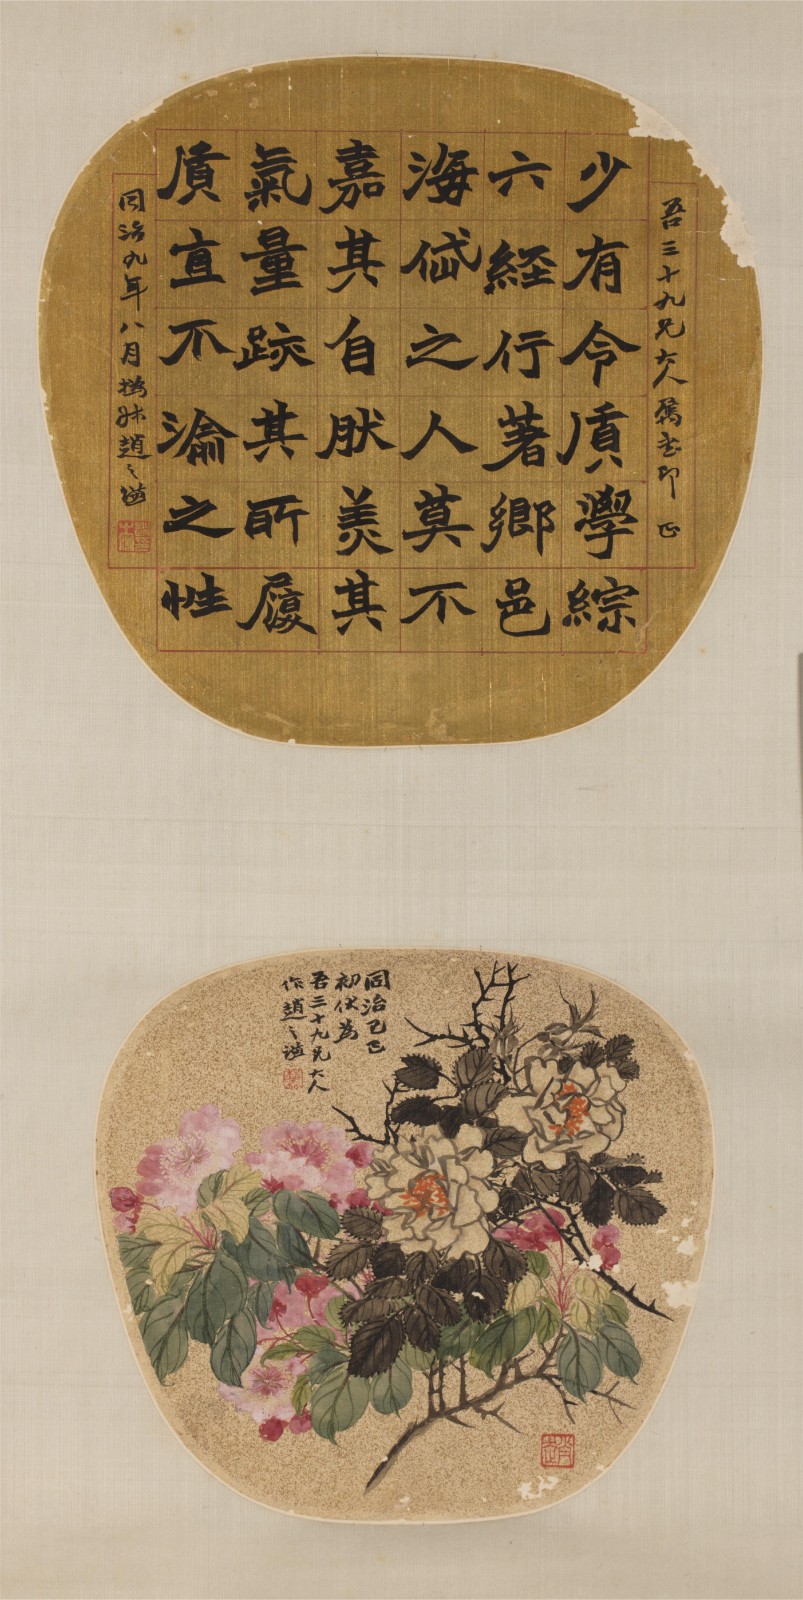 吾三十九兄大人屬書即正
少有令質學綜
六經行著鄉邑
海岱之人莫不
嘉其自然美其
氣量踪其所履
質直不渝之性
同治九年八月撝叔趙之謙
同治己巳
初伏為
吾三十九兄大人
作趙之謙